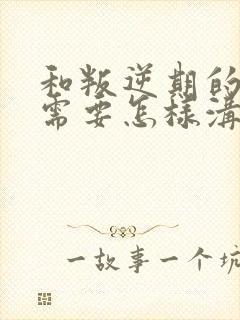 和叛逆期的
需要怎样溝
一故事一个坑